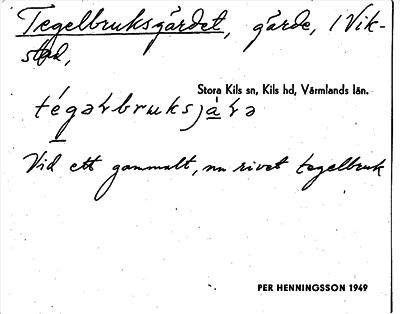 Tegelbruksgärdet, gärde, / Vik-
stad,
Stora Kils sn, Kils hd, Värmlands län.
Vid ett gammalt, nu rivet tegelbruk
PER HENNINGSSON 1949